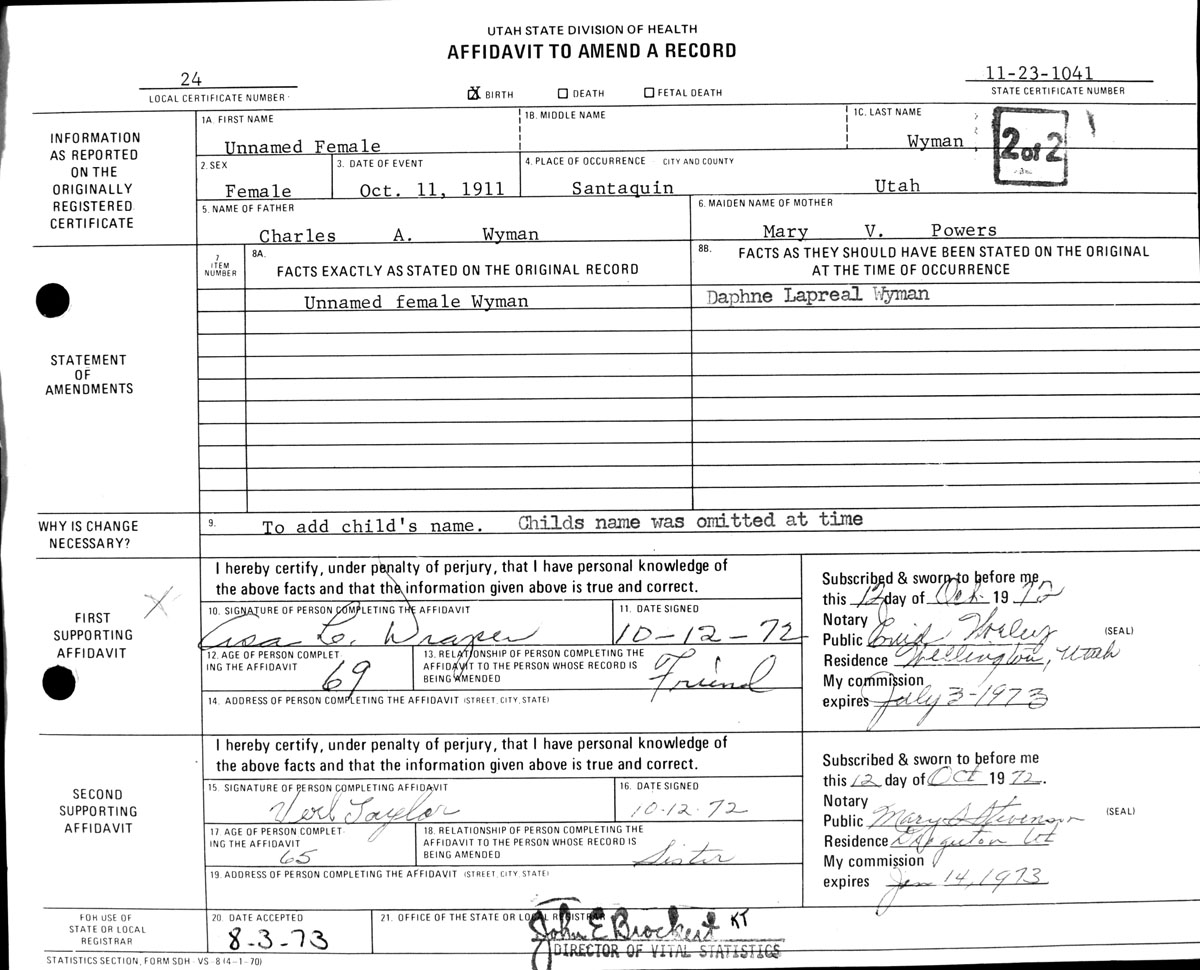 UTAH STATE DIVISION OF HEALTH
AFFIDAVIT TO AMEND A RECORD
24
LOCAL CERTIFICATE NUMBER
X BIRTH DEATH FETAL DEATH
11-23-1041
STATE CERTIFICATE NUMBER
INFORMATION
AS REPORTED
ON THE
ORIGINALLY
REGISTERED
CERTIFICATE
1A. FIRST NAME
Unnamed Female
1B. MIDDLE NAME
1C. LAST NAME
Wyman
2 of 2
2. SEX
Female
3. DATE OF EVENT
Oct. 11, 1911
4. PLACE OF OCCURRENCE CITY AND COUNTY
Santaquin Utah
5. NAME OF FATHER
Charles A. Wyman
6. MAIDEN NAME OF MOTHER
Mary V. Powers
STATEMENT
OF
AMENDMENTS
7
ITEM
NUMBER
8A.
FACTS EXACTLY AS STATED ON THE ORIGINAL RECORD
8B. FACTS AS THEY SHOULD HAVE BEEN STATED ON THE ORIGINAL
AT THE TIME OF OCCURRENCE
Unnamed female Wyman
Daphne Lapreal Wyman
WHY IS CHANGE
NECESSARY?
9. To add child's name. Childs name was omitted at time
FIRST
SUPPORTING
AFFIDAVIT
X
I hereby certify, under penalty of perjury, that I have personal knowledge of
the above facts and that the information given above is true and correct.
10. SIGNATURE OF PERSON COMPLETING THE AFFIDAVIT
Asa L. Draper
11. DATE SIGNED
10-12-72
12. AGE OF PERSON COMPLET-
ING THE AFFIDAVIT
69
13. RELATIONSHIP OF PERSON COMPLETING THE
AFFIDAVIT TO THE PERSON WHOSE RECORD IS
BEING AMENDED
Friend
14. ADDRESS OF PERSON COMPLETING THE AFFIDAVIT (STREET, CITY, STATE)
Subscribed & sworn to before me
this 12 day of Oct. 1972
Notary
Public Enid
(SEAL)
Residence Wellington, Utah
My commission
expires July 3-1973
SECOND
SUPPORTING
AFFIDAVIT
I hereby certify, under penalty of perjury, that I have personal knowledge of
the above facts and that the information given above is true and correct.
15. SIGNATURE OF PERSON COMPLETING AFFIDAVIT
Verl Taylor
16. DATE SIGNED
10-12-72
17. AGE OF PERSON COMPLET-
ING THE AFFIDAVIT
65
18. RELATIONSHIP OF PERSON COMPLETING THE
AFFIDAVIT TO THE PERSON WHOSE RECORD IS
BEING AMENDED
Sister
19. ADDRESS OF PERSON COMPLETING THE AFFIDAVIT (STREET, CITY, STATE)
Subscribed & sworn to before me
this 12 day of Oct 1972.
Notary
Public Mary S Stevenson
(SEAL)
Residence Ut
My commission
expires Jan 14, 1973
FOR USE OF
STATE OR LOCAL
REGISTRAR
20. DATE ACCEPTED
8-3-73
21. OFFICE OF THE STATE OR LOCAL REGISTRAR
John E Brockert KT
DIRECTOR OF VITAL STATISTICS
STATISTICS SECTION, FORM SDH - VS - 8 (4-1-70)